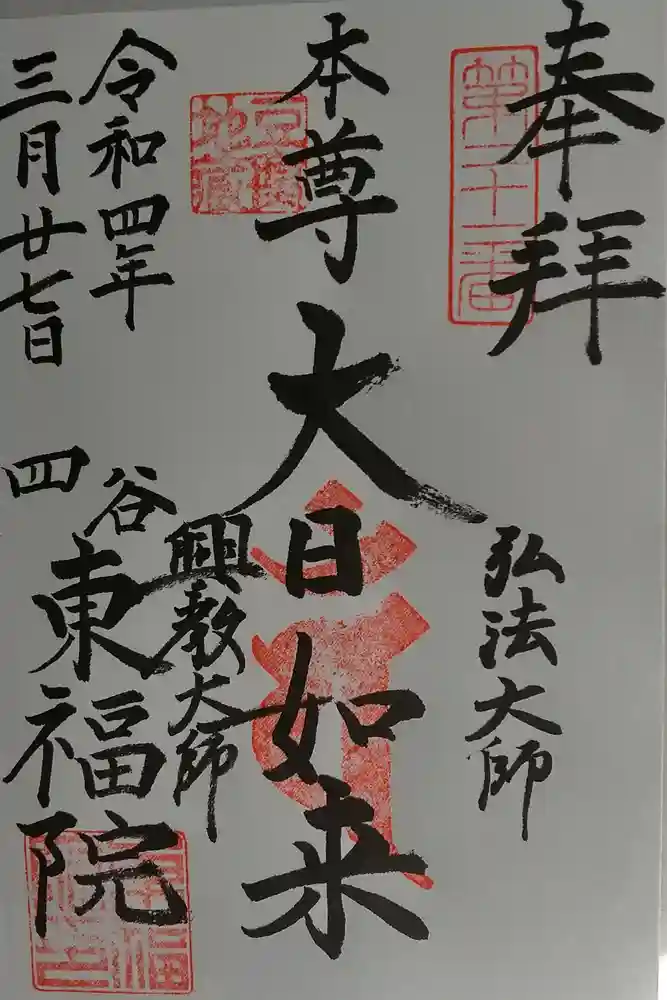 奉拝
第二十一番
弘法大師
本尊
大日如来
興教大師
令和四年
三月廿七日
四谷
東福院